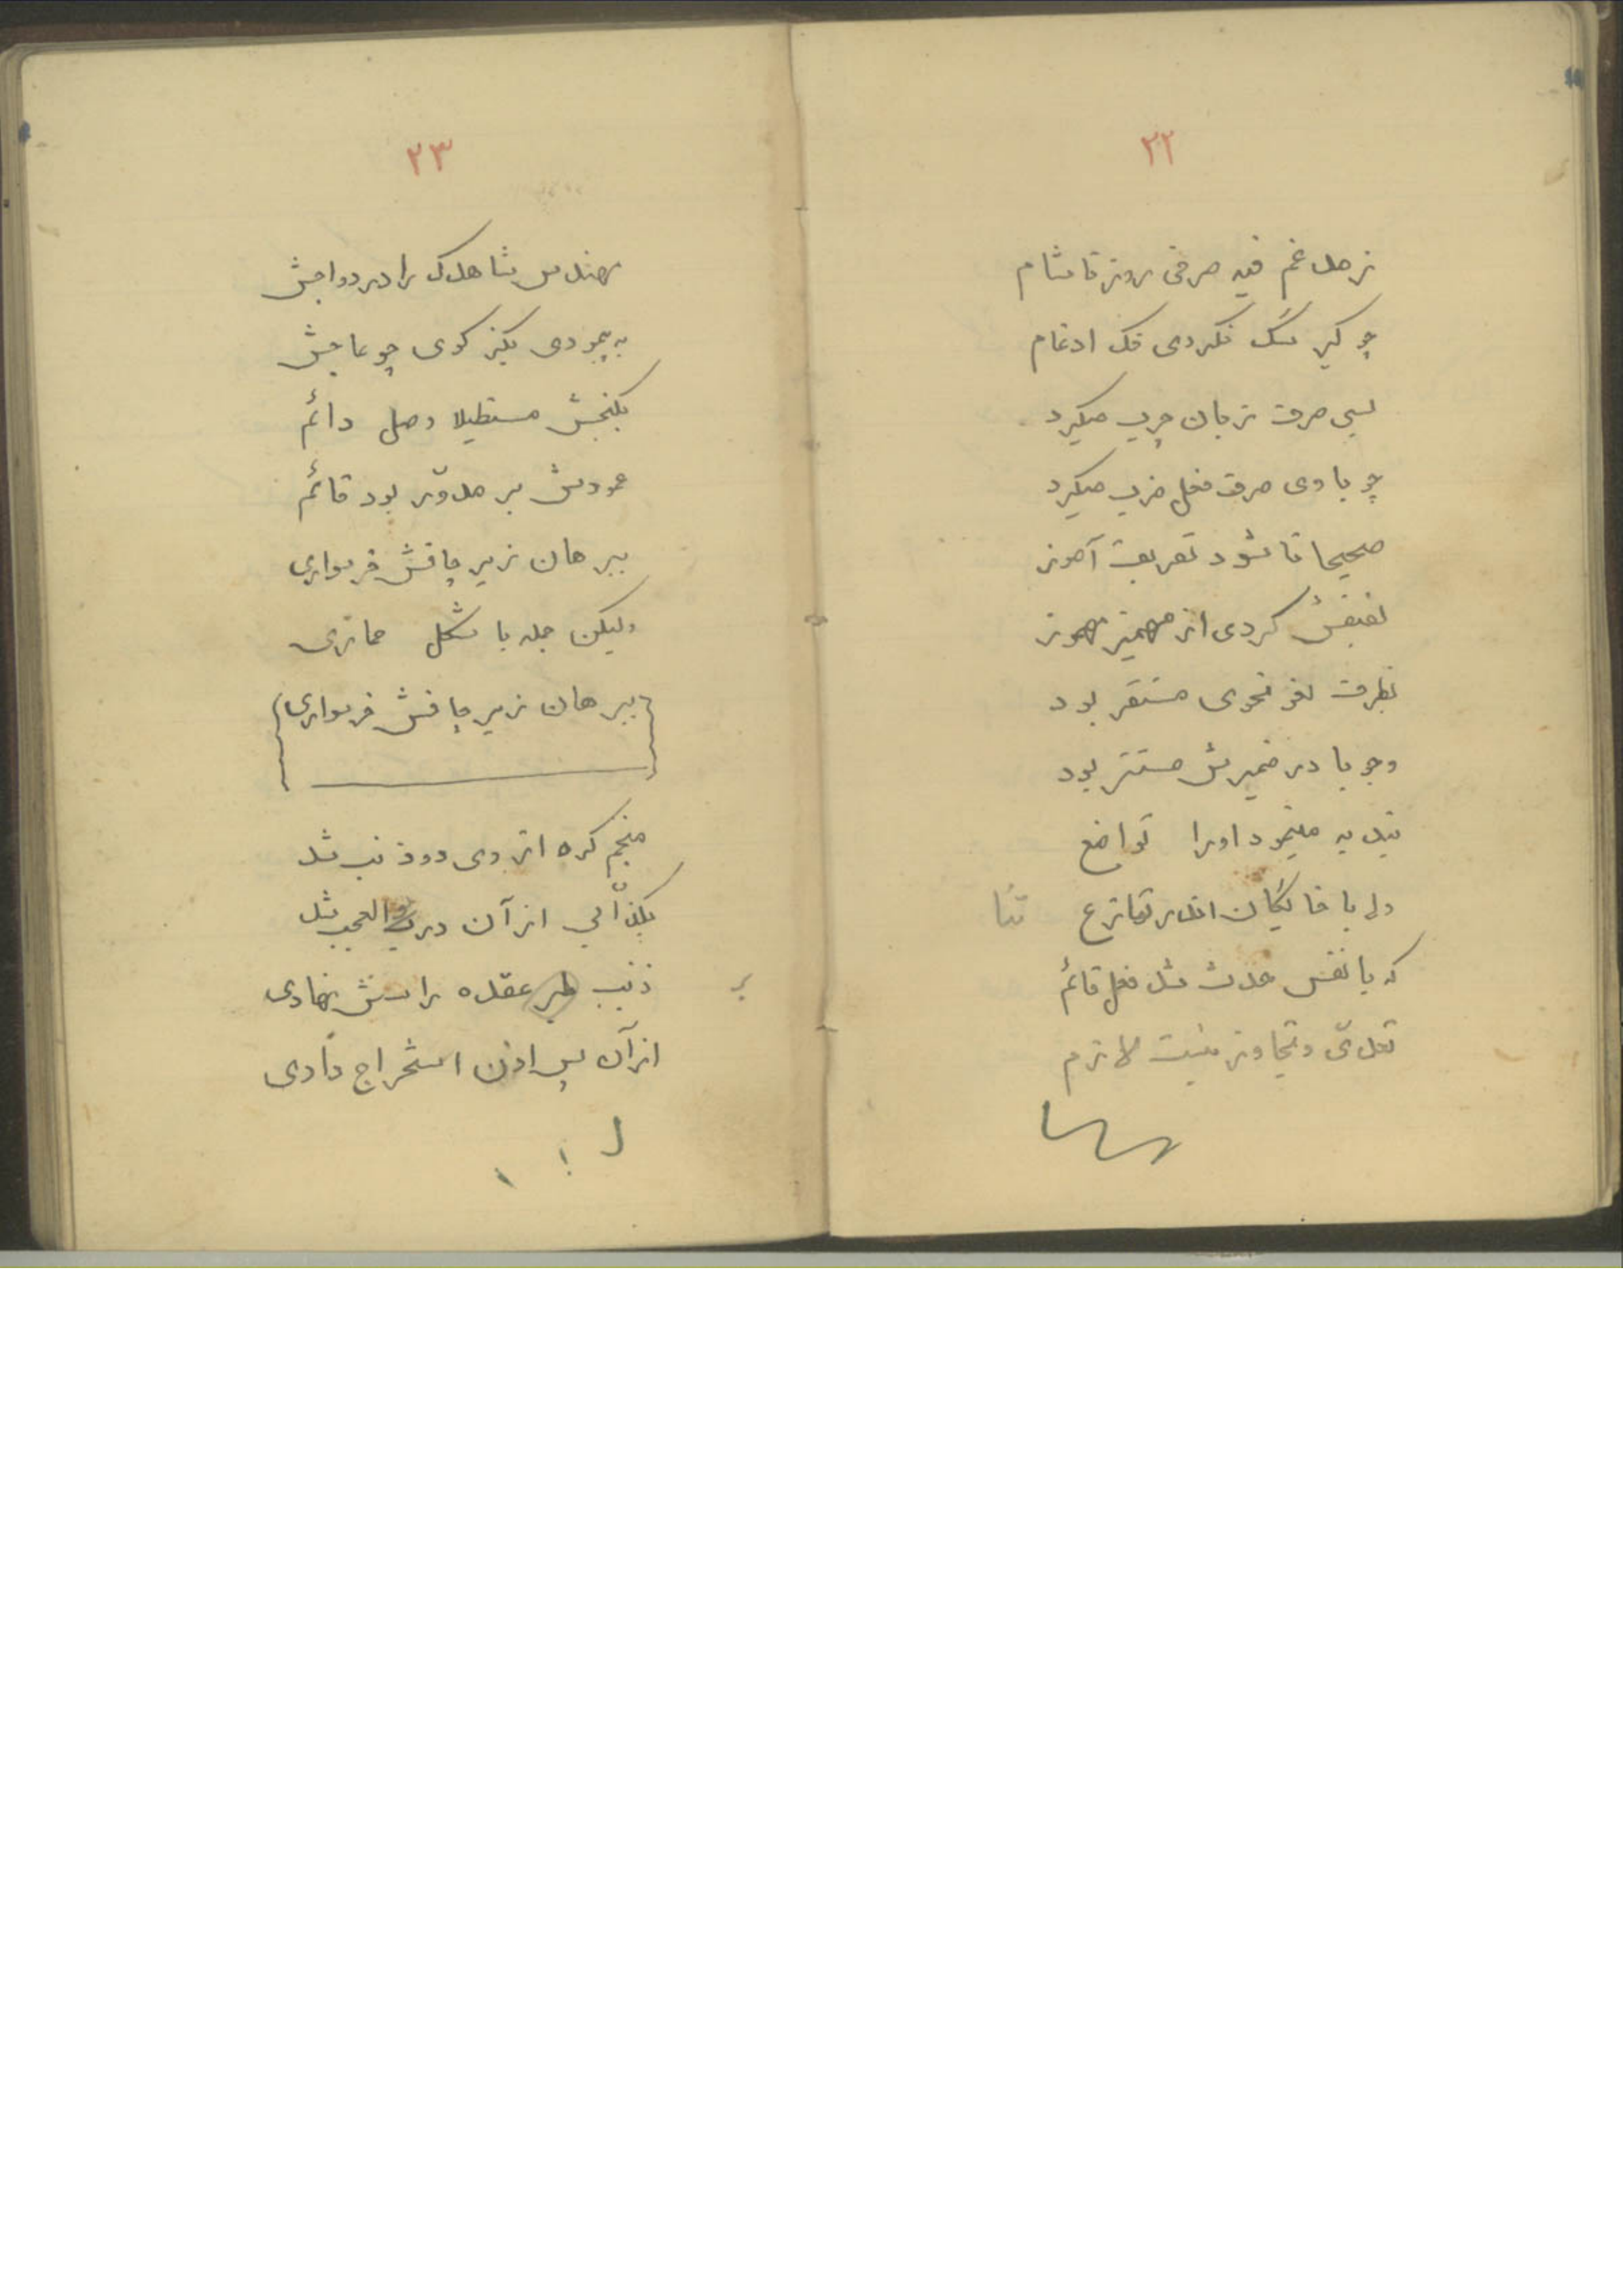 ۲۲
ز مدغم فیه صرفی روز تا شام
چو کیر سگ نکردی فک ادغام
بسی صرف زبان چرب میکرد
چو با وی صرف فعل ضرب میکرد
صحیحا تا شود تعریف آموز
لفیفش کردی از مهمیز مهموز
بظرف لغو نحوی مستقر بود
وجوبا در ضمیرش مستتر بود
مینمود اورا تواضع
ولی با خایگان اندر تنازع
که با نفس حدث شد فعل قائم
تعدی و تجاوز نیست لازم
۲۳
مهندس شاهدک را در دواجش
به پیمودی بکیز کوی چو عاجش
بکنجش مستطیلا وصل دائم
عمودش بر مدوّر بود قائم
ببرهان زیر چاقش فربواری
ولیکن جمله با شکل حماری
ببرهان زیر چاقش فربواری
منجم کره از وی دوذنب شد
از آن در بوالعجب شد
ذنب بر عقده راسش نهادی
از آن پس اذن استخراج دادی